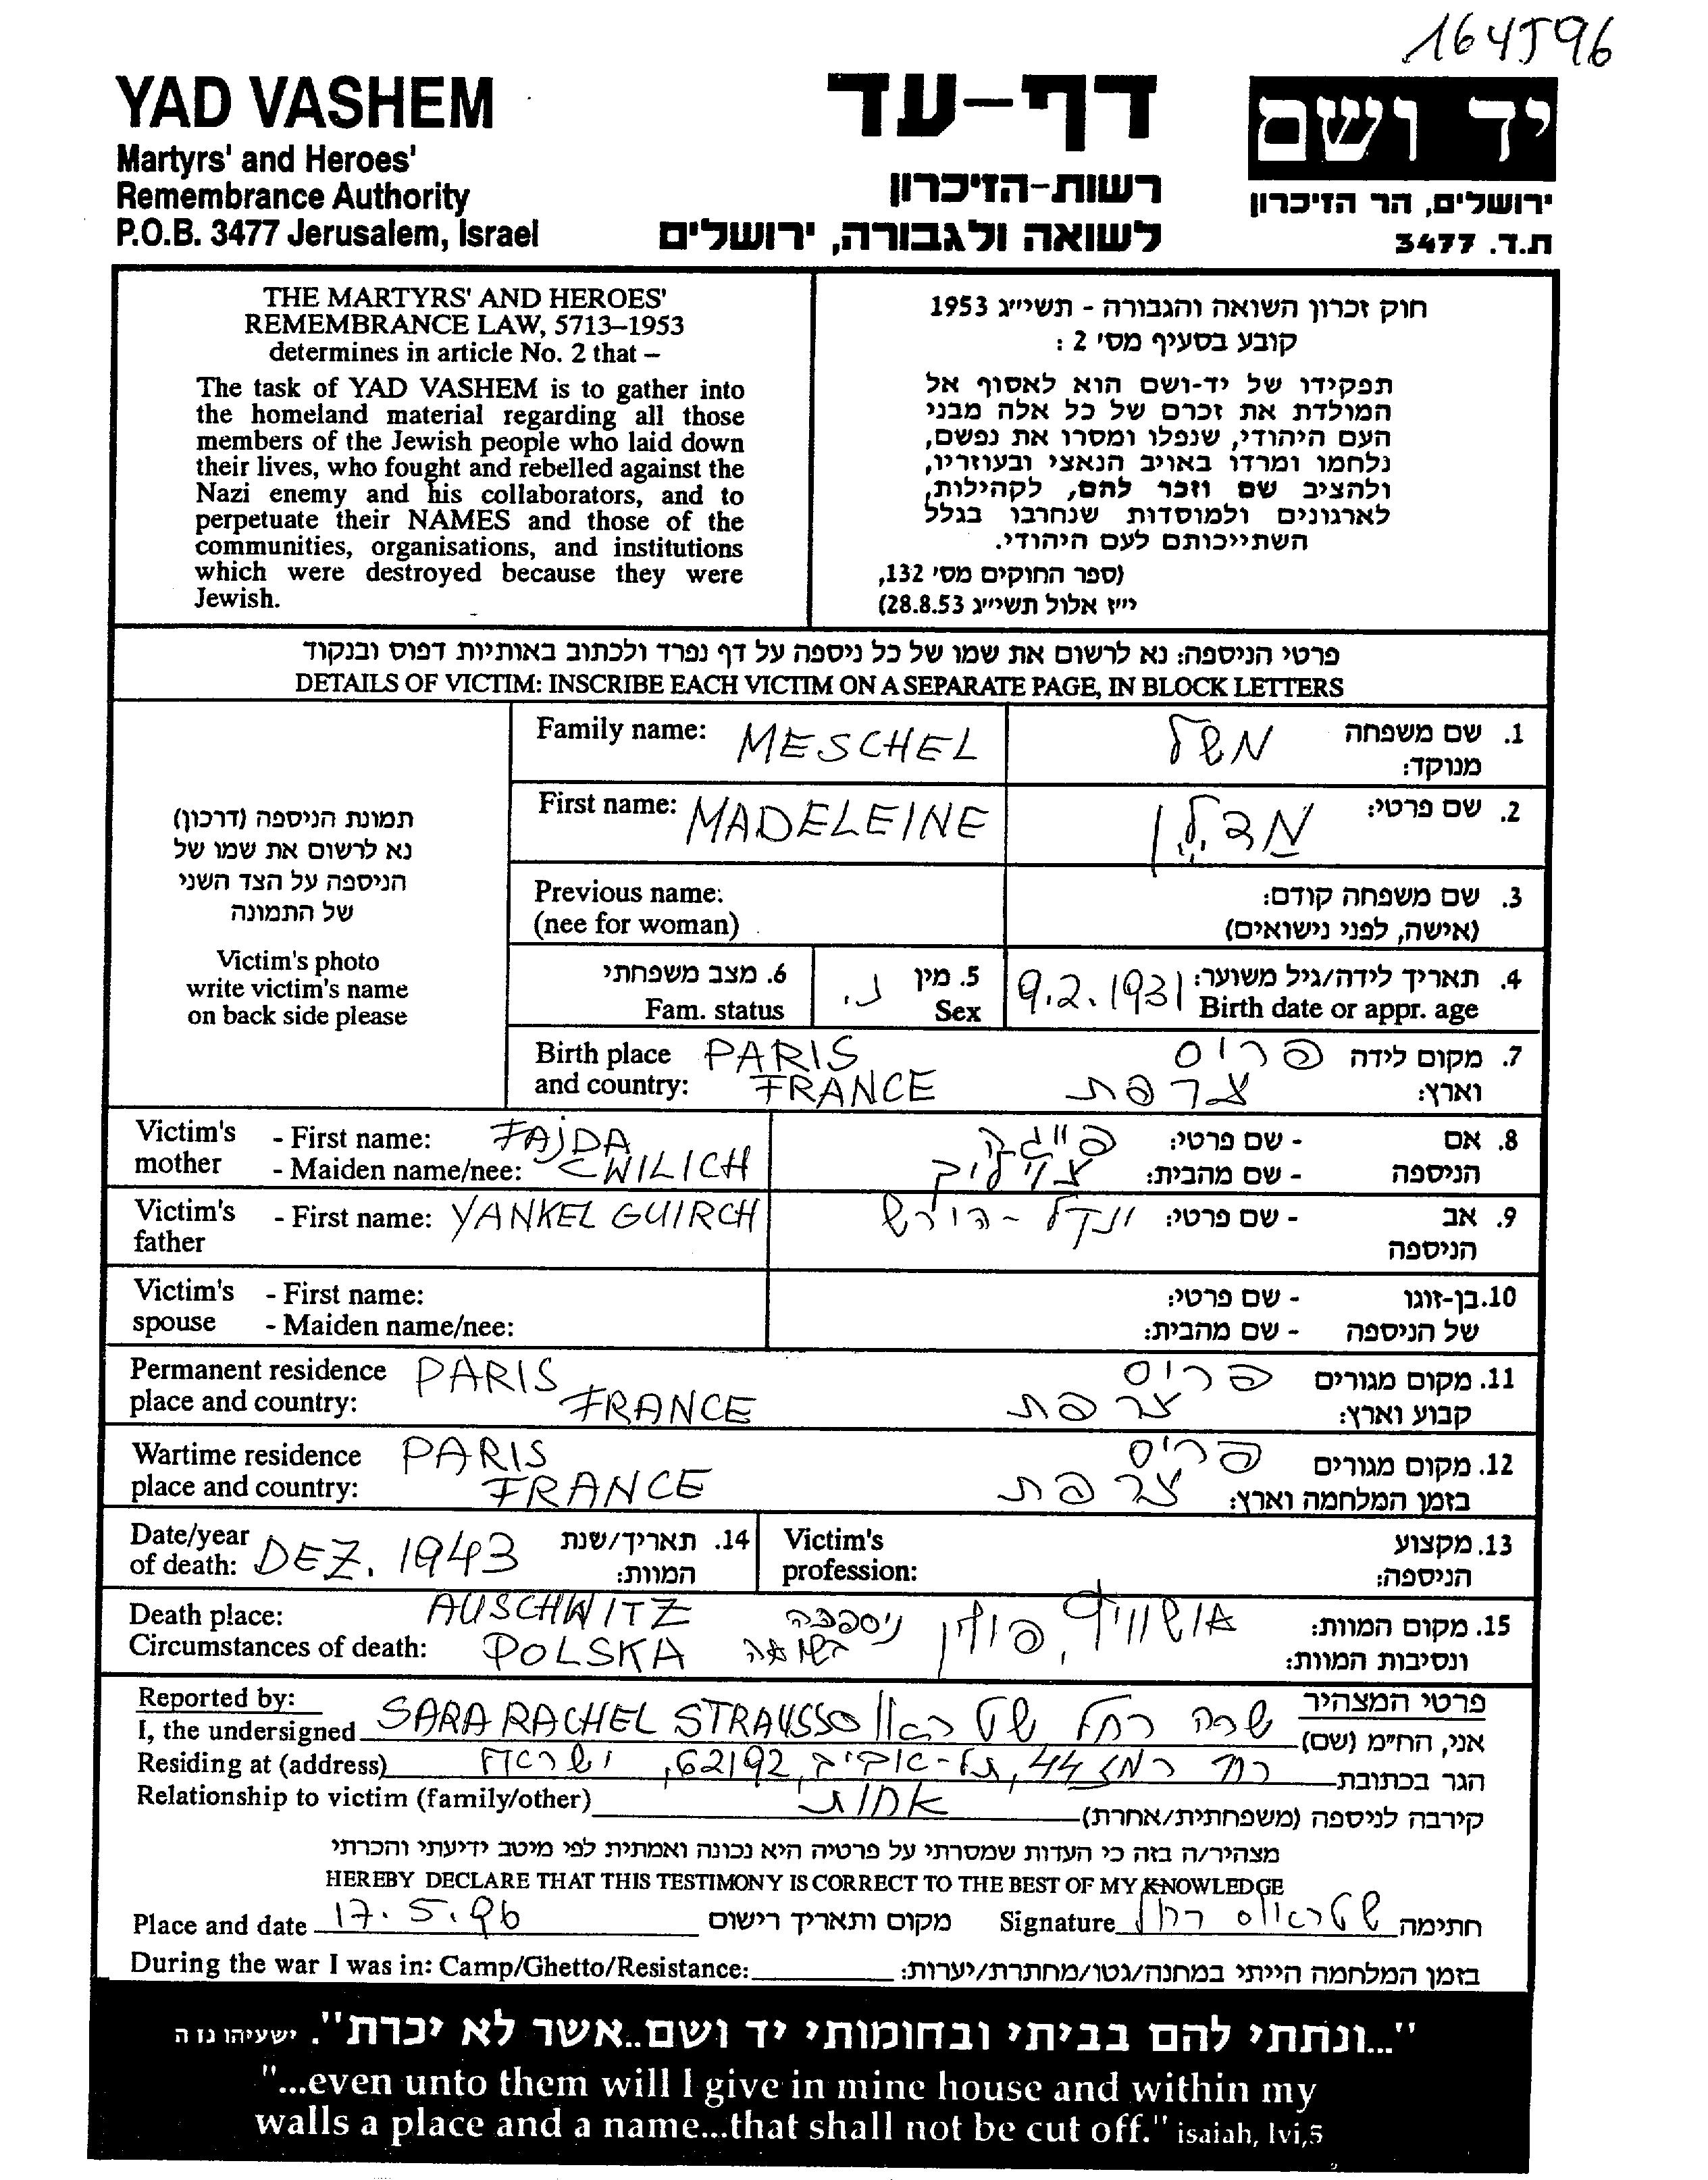 164596
YAD VASHEM
Martyrs' and Heroes'
Remembrance Authority
P.O.B. 3477 Jerusalem, Israel
דף-עד
רשות-הזיכרון
לשואה ולגבורה, ירושלים
יד ושם
ירושלים, הר הזיכרון
ת.ד. 3477
THE MARTYRS' AND HEROES'
REMEMBRANCE LAW, 5713–1953
determines in article No. 2 that –
The task of YAD VASHEM is to gather into
the homeland material regarding all those
members of the Jewish people who laid down
their lives, who fought and rebelled against the
Nazi enemy and his collaborators, and to
perpetuate their NAMES and those of the
communities, organisations, and institutions
which were destroyed because they were
Jewish.
חוק זכרון השואה והגבורה - תשי״ג 1953
קובע בסעיף מס׳ 2 :
תפקידו של יד-ושם הוא לאסוף אל
המולדת את זכרם של כל אלה מבני
העם היהודי, שנפלו ומסרו את נפשם,
נלחמו ומרדו באויב הנאצי ובעוזריו,
ולהציב שם וזכר להם, לקהילות,
לארגונים ולמוסדות שנחרבו בגלל
השתייכותם לעם היהודי.
(ספר החוקים מס׳ 132,
י״ז אלול תשי״ג 28.8.53)
פרטי הניספה: נא לרשום את שמו של כל ניספה על דף נפרד ולכתוב באותיות דפוס ובנקוד
DETAILS OF VICTIM: INSCRIBE EACH VICTIM ON A SEPARATE PAGE, IN BLOCK LETTERS
תמונת הניספה (דרכון)
נא לרשום את שמו של
הניספה על הצד השני
של התמונה
Victim's photo
write victim's name
on back side please
Family name: MESCHEL משל 1. שם משפחה
מנוקד:
First name: MADELEINE מַדְלֵן 2. שם פרטי:
Previous name: 3. שם משפחה קודם:
(nee for woman) (אישה, לפני נישואים)
6. מצב משפחתי נ. 5. מין 9.2.1931 4. תאריך לידה/גיל משוער:
Fam. status Sex Birth date or appr. age
Birth place PARIS פריס 7. מקום לידה
and country: FRANCE צרפת וארץ:
Victim's - First name: FAJDA - שם פרטי: 8. אם
mother - Maiden name/nee: CWILICH צויליך - שם מהבית: הניספה
Victim's - First name: YANKEL GUIRCH ינקל-הירש - שם פרטי: 9. אב
father הניספה
Victim's - First name: - שם פרטי: 10. בן-זוגו
spouse - Maiden name/nee: - שם מהבית: של הניספה
Permanent residence PARIS פריס 11. מקום מגורים
place and country: FRANCE צרפת קבוע וארץ:
Wartime residence PARIS פריס 12. מקום מגורים
place and country: FRANCE צרפת בזמן המלחמה וארץ:
Date/year 14. תאריך/שנת Victim's 13. מקצוע
of death: DEZ. 1943 המוות: profession: הניספה:
Death place: AUSCHWITZ ניספתה אושוויץ, פולין 15. מקום המוות:
Circumstances of death: POLSKA בשואה ונסיבות המוות:
Reported by: פרטי המצהיר
I, the undersigned SARA RACHEL STRAUSS שרה רחל שטראוס אני, הח״מ (שם)
Residing at (address) רח' רמז 44, תל-אביב, 62192, ישראל הגר בכתובת
Relationship to victim (family/other) אחות קירבה לניספה (משפחתית/אחרת)
מצהיר/ה בזה כי העדות שמסרתי על פרטיה היא נכונה ואמתית לפי מיטב ידיעתי והכרתי
HEREBY DECLARE THAT THIS TESTIMONY IS CORRECT TO THE BEST OF MY KNOWLEDGE
Place and date 17.5.96 מקום ותאריך רישום Signature שטראוס רחל חתימה
During the war I was in: Camp/Ghetto/Resistance: בזמן המלחמה הייתי במחנה/גטו/מחתרת/יערות:
"...ונתתי להם בביתי ובחומותי יד ושם..אשר לא יכרת". ישעיהו נו ה
"...even unto them will I give in mine house and within my
walls a place and a name...that shall not be cut off." isaiah, lvi,5